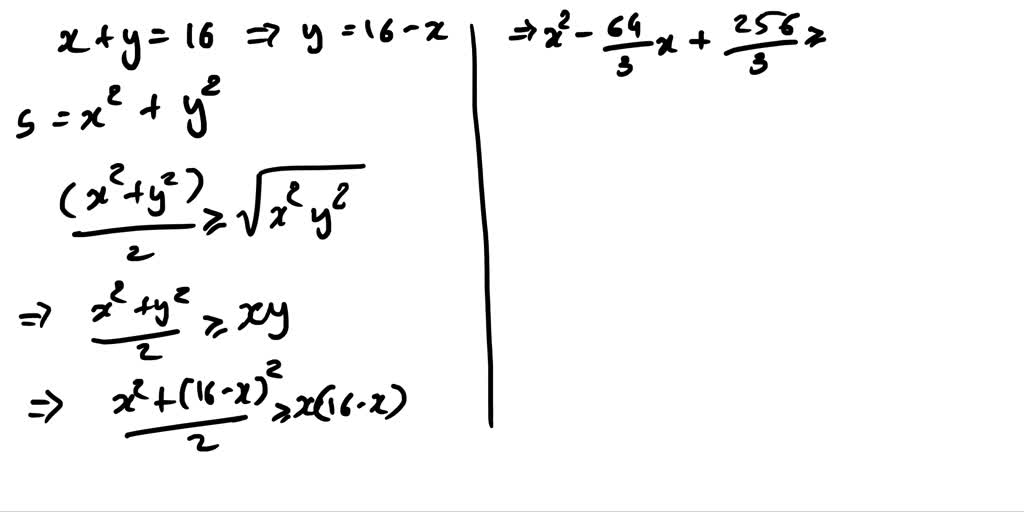 x + y = 16 ⇒ y = 16 - x
s = x² + y²
(x² + y²)/2 ≥ √(x² y²)
⇒ (x² + y²)/2 ≥ xy
⇒ (x² + (16 - x)²)/2 ≥ x(16 - x)
⇒ x² - 64/3 x + 256/3 ≥